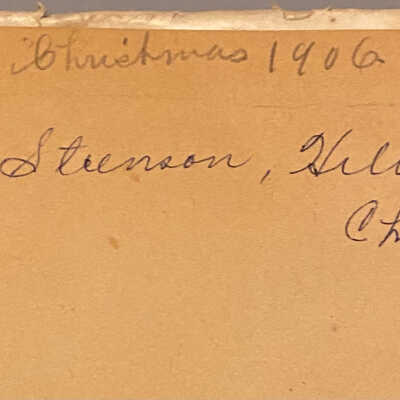 Christmas 1906
Steenson, Hil
Ch